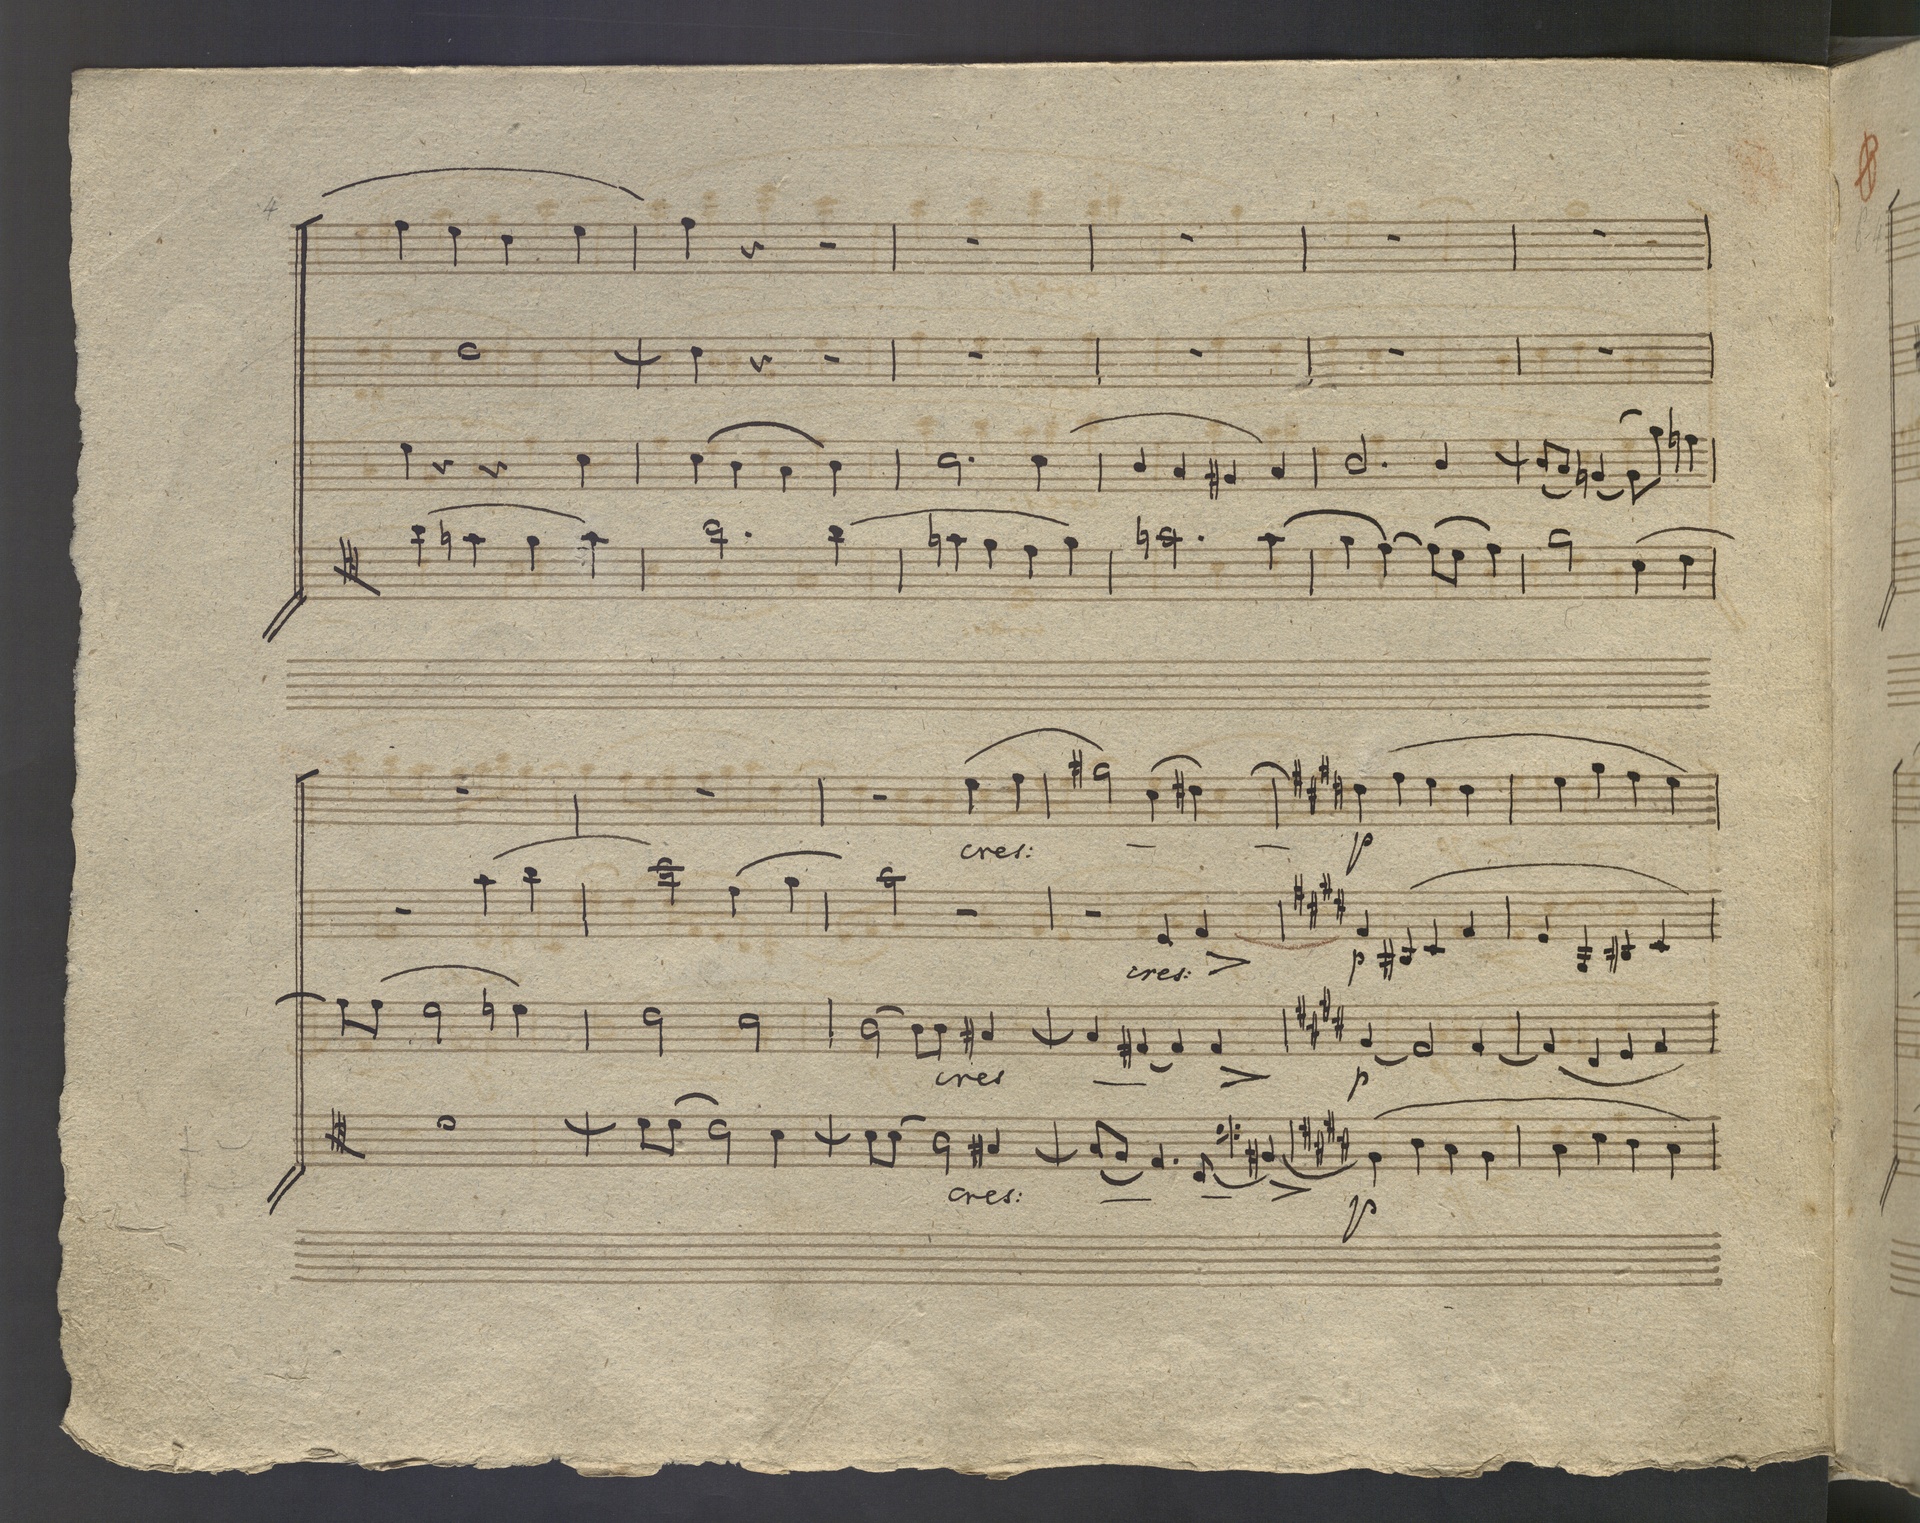 4
8
cres: – –
p
cres: >
p
cres — >
p
cres: — – >
p